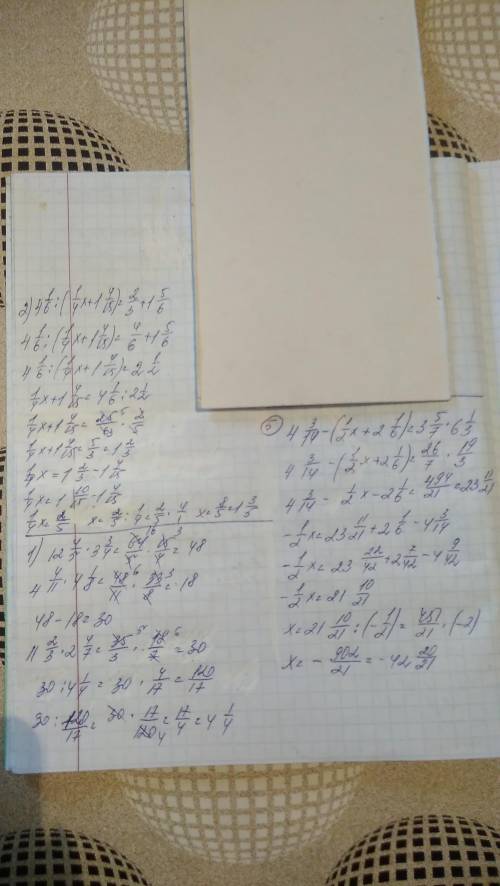 2) 4 1/6 : (1/4 x + 1 4/15) = 2/3 + 1 5/6
4 1/6 : (1/4 x + 1 4/15) = 4/6 + 1 5/6
4 1/6 : (1/4 x + 1 4/15) = 2 1/2
1/4 x + 1 4/15 = 4 1/6 : 2 1/2
1/4 x + 1 4/15 = 25/6 · 2/5
1/4 x + 1 4/15 = 5/3 = 1 2/3
1/4 x = 1 2/3 - 1 4/15
1/4 x = 1 10/15 - 1 4/15
1/4 x = 2/5 x = 2/5 : 1/4 = 2/5 · 4/1 x = 8/5 = 1 3/5
1) 12 4/5 · 3 3/4 = 64/5 · 15/4 = 48
4 4/11 · 4 1/8 = 48/11 · 33/8 = 18
48 - 18 = 30
11 2/3 · 2 4/7 = 35/3 · 18/7 = 30
30 : 4 1/4 = 30 · 4/17 = 120/17
30 : 120/17 = 30 · 17/120 = 17/4 = 4 1/4
5) 4 3/14 - (1/2 x + 2 1/6) = 3 5/7 · 6 1/3
4 3/14 - (1/2 x + 2 1/6) = 26/7 · 19/3
4 3/14 - 1/2 x - 2 1/6 = 494/21 = 23 11/21
- 1/2 x = 23 11/21 + 2 1/6 - 4 3/14
- 1/2 x = 23 22/42 + 2 7/42 - 4 9/42
- 1/2 x = 21 10/21
x = 21 10/21 : (- 1/2) = 451/21 · (-2)
x = - 902/21 = - 42 20/21